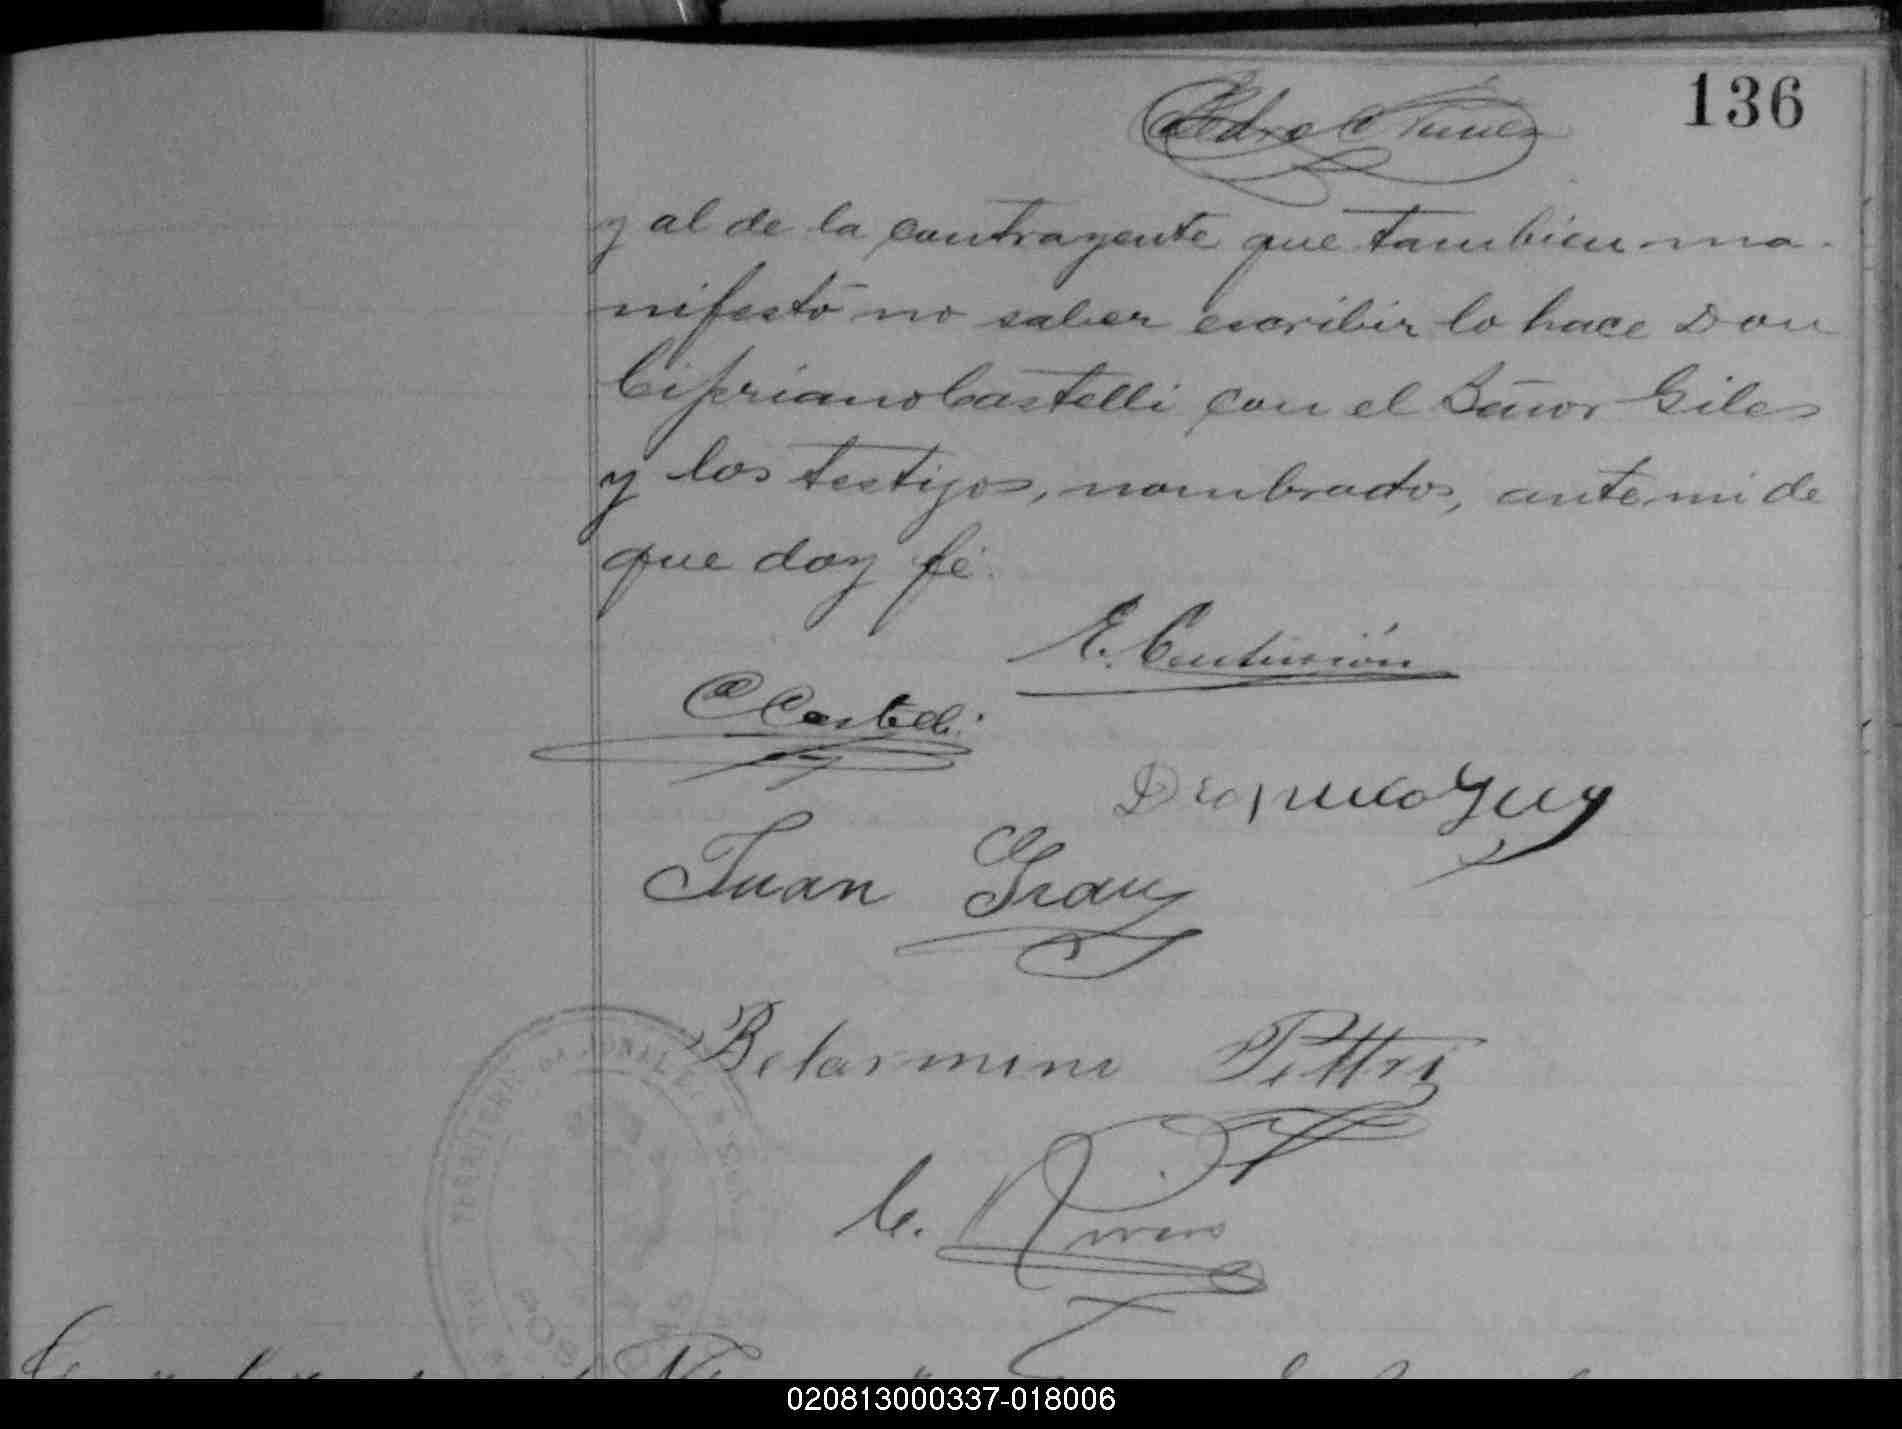 136
Pedro C Nunez
y al de la contrayente que tambien ma-
nifestó no saber escribir lo hace Don
Cipriano Castelli con el Señor Giles
y los testigos, nombrados, ante mi de
que doy fé.
E. Centurión
C Castelli
Juan Grau
Belarmino Pettri
C. Rivero
020813000337-018006